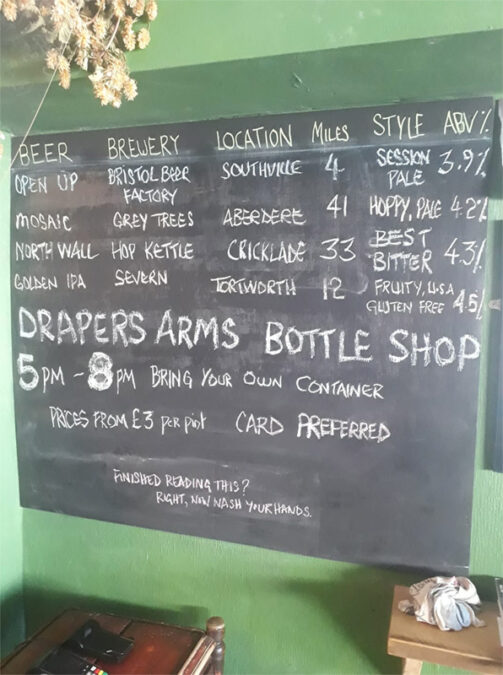 BEER BREWERY LOCATION MILES STYLE ABV%
OPEN UP BRISTOL BEER FACTORY SOUTHVILLE 4 SESSION PALE 3.9%
MOSAIC GREY TREES ABERDERE 41 HOPPY, PALE 4.2%
NORTH WALL HOP KETTLE CRICKLADE 33 BEST BITTER 4.3%
GOLDEN IPA SEVERN TORTWORTH 12 FRUITY, U.S.A GLUTEN FREE 4.5%
DRAPERS ARMS BOTTLE SHOP
5PM - 8PM BRING YOUR OWN CONTAINER
PRICES FROM £3 per pint CARD PREFERRED
FINISHED READING THIS?
RIGHT, NOW WASH YOUR HANDS.